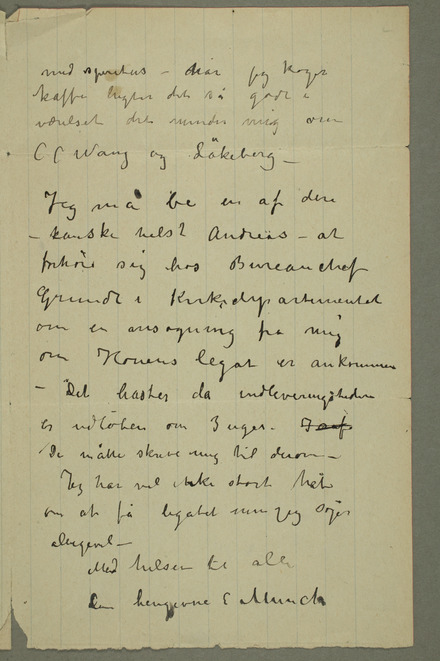 med spiritus – når jeg koger
kaffe lugter det så godt i
værelset det minder mig om
CC Wang og Låkeberg –
Jeg må be en af dere
– kanske helst Andreas – at
forhøre sig hos Bureauchef
Grundt i Kirkedepartementet
om en ansøgning fra mig
om Houens legat er ankommen
– Det haster da indleveringstiden
er udløben om 3 uger.
De måtte skrive mig til derom –
Jeg har vel ikke stort håb
om at få legatet men jeg søger
alligevel –
Med hilsen til alle
Din hengivne E Munch